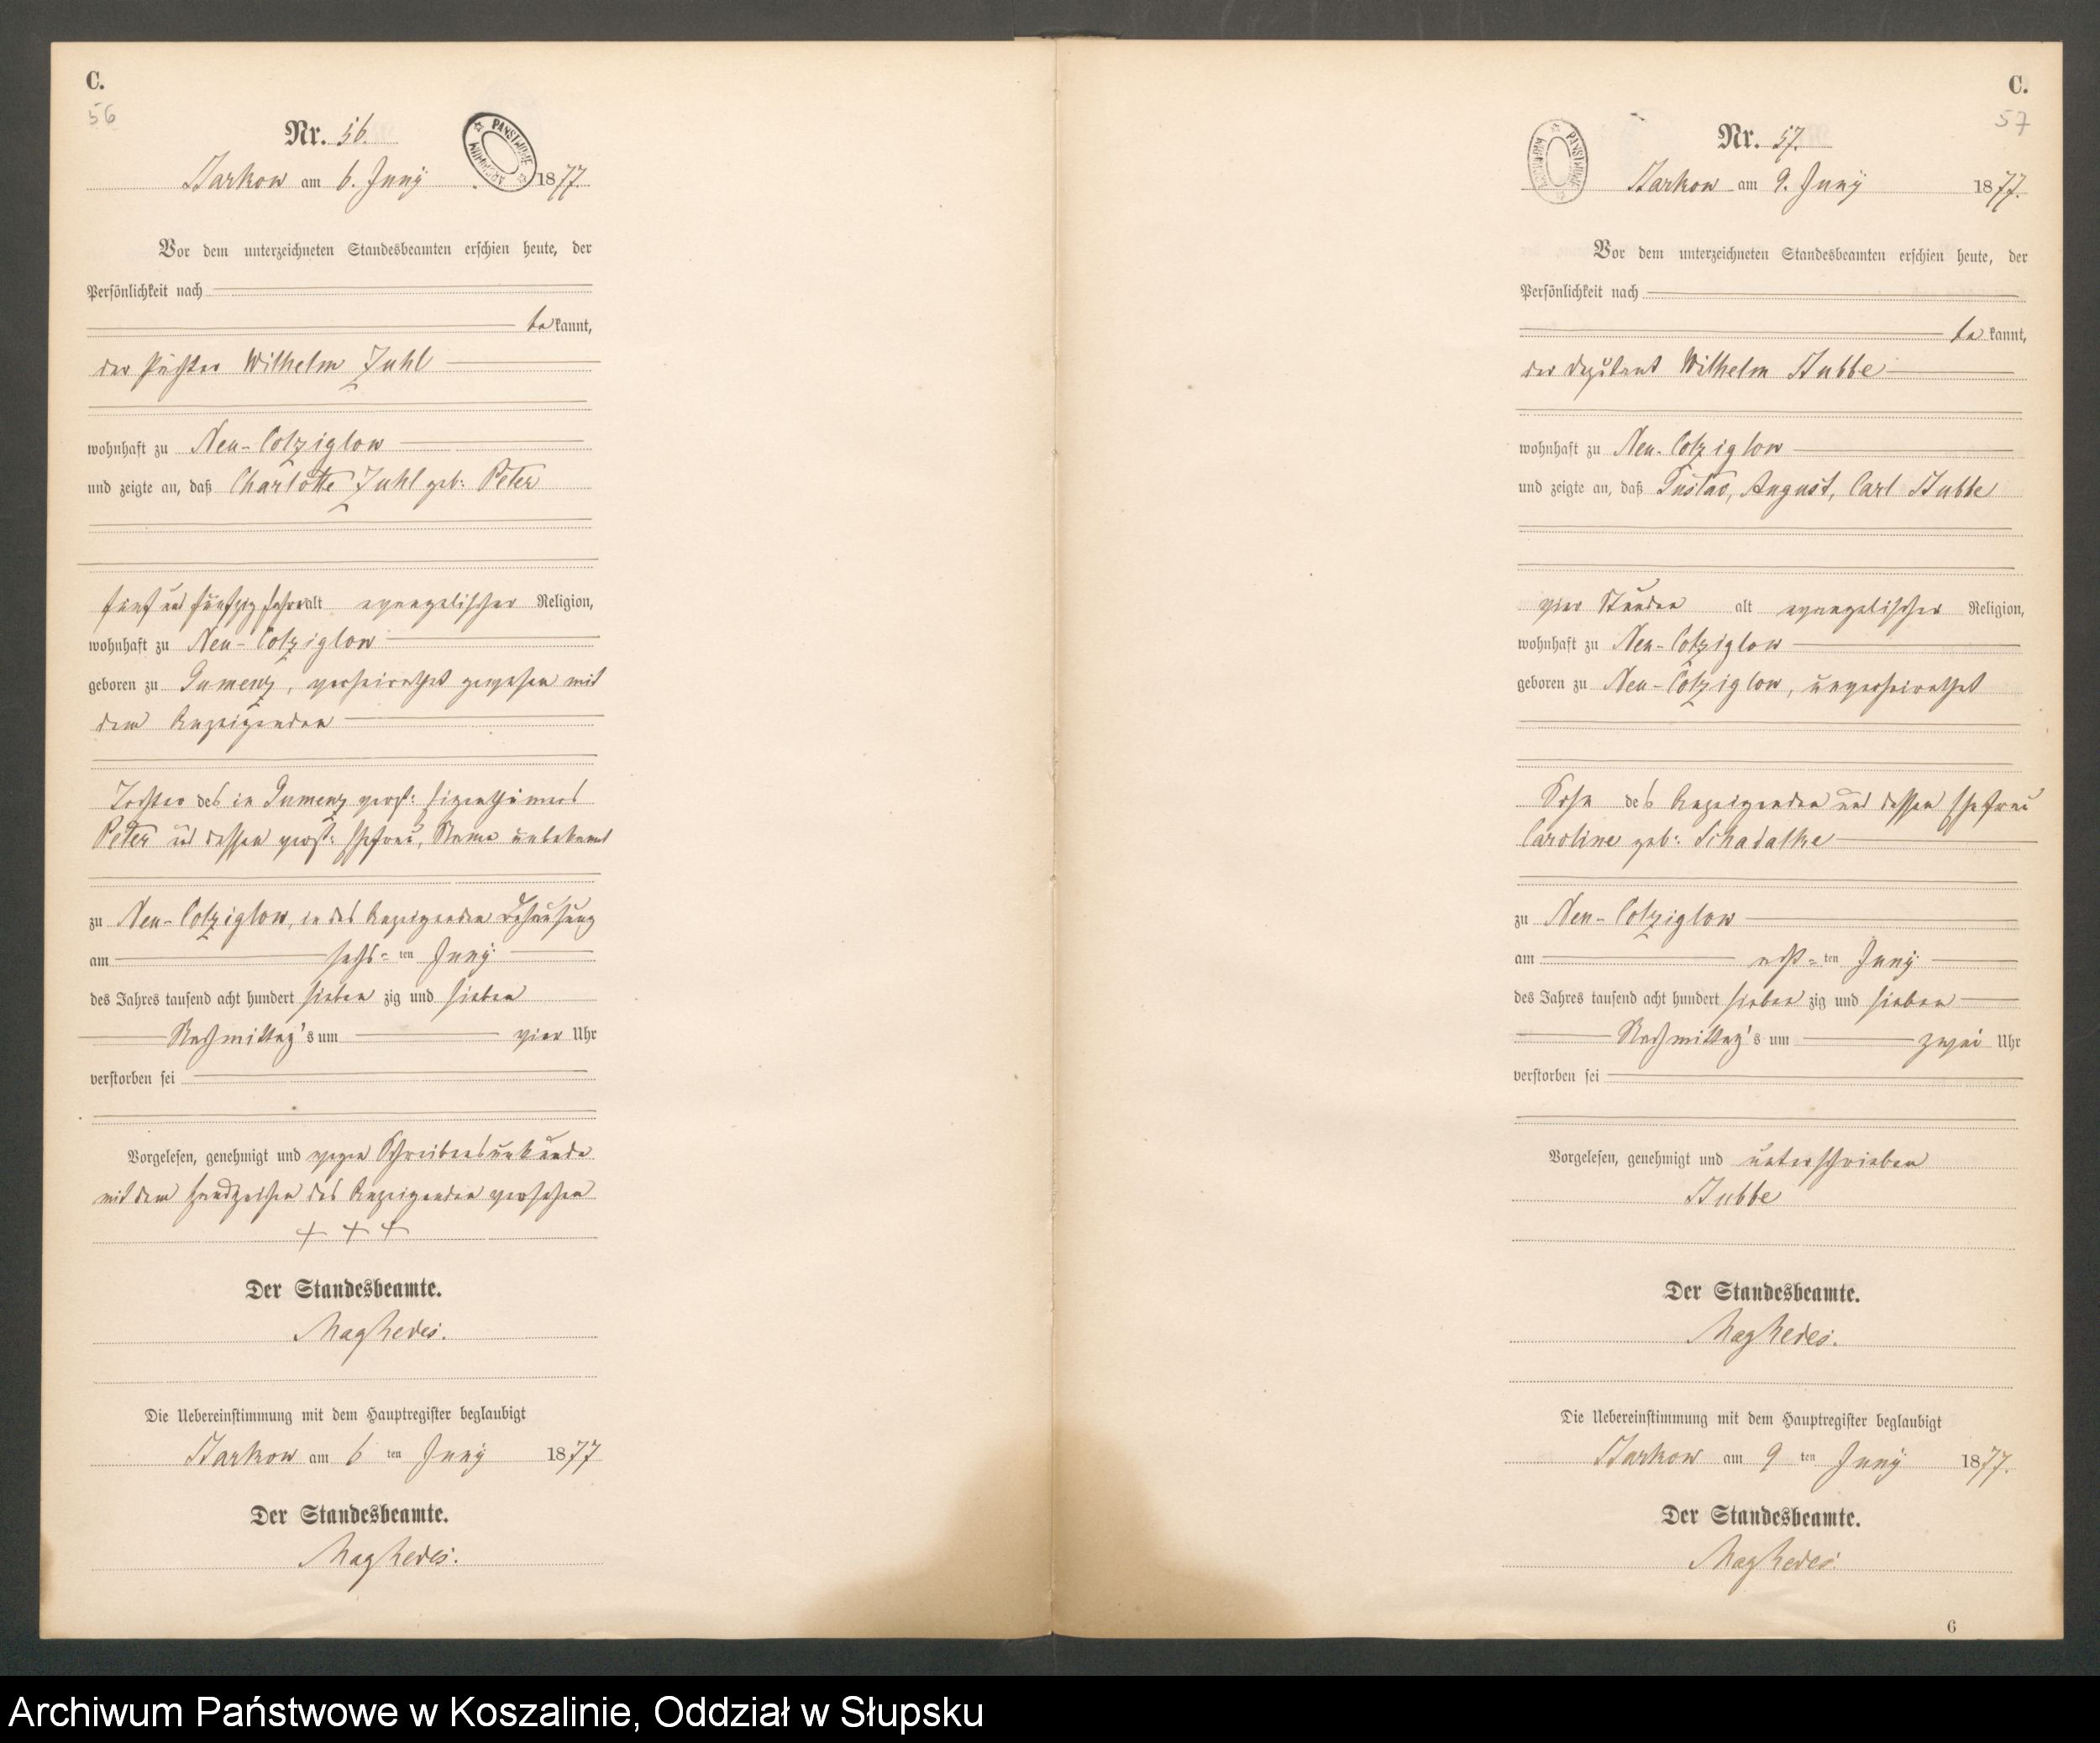 C.
56
Nr. 56.
ARCHIWUM PAŃSTWOWE
Starkow am 6. Juny 1877.
Vor dem unterzeichneten Standesbeamten erschien heute, der
Persönlichkeit nach
bekannt,
der Wilhelm Zuhl
wohnhaft zu Neu-Cotziglow
und zeigte an, daß Charlotte Zuhl geb: Peter
fünf und fünfzig Jahre alt evangelischer Religion,
wohnhaft zu Neu-Cotziglow
geboren zu Gumenz, verheirathet gewesen mit
dem Anzeigenden
Tochter des in Gumenz verst: Eigenthümers
Peter und dessen verst: Ehefrau, Name unbekannt
zu Neu-Cotziglow, in des Anzeigenden Behausung
am sechs-ten Juny
des Jahres tausend acht hundert sieben zig und sieben
Nachmittag's um vier Uhr
verstorben sei
Vorgelesen, genehmigt und wegen Schreibensunkunde
mit dem Handzeichen des Anzeigenden versehen
+ + +
Der Standesbeamte.
Die Uebereinstimmung mit dem Hauptregister beglaubigt
Starkow am 6 ten Juny 1877
Der Standesbeamte.
C.
57
Nr. 57.
ARCHIWUM PAŃSTWOWE
Starkow am 9. Juny 1877.
Vor dem unterzeichneten Standesbeamten erschien heute, der
Persönlichkeit nach
bekannt,
der Deputant Wilhelm Stubbe
wohnhaft zu Neu-Cotziglow
und zeigte an, daß Gustav, August, Carl Stubbe
vier Stunden alt evangelischer Religion,
wohnhaft zu Neu-Cotziglow
geboren zu Neu-Cotziglow, unverheirathet
Sohn des Anzeigenden und dessen Ehefrau
Caroline geb: Schadathe
zu Neu-Cotziglow
am acht-ten Juny
des Jahres tausend acht hundert sieben zig und sieben
Nachmittag's um zwei Uhr
verstorben sei
Vorgelesen, genehmigt und unterschrieben
Stubbe
Der Standesbeamte.
Die Uebereinstimmung mit dem Hauptregister beglaubigt
Starkow am 9 ten Juny 1877.
Der Standesbeamte.
6
Archiwum Państwowe w Koszalinie, Oddział w Słupsku